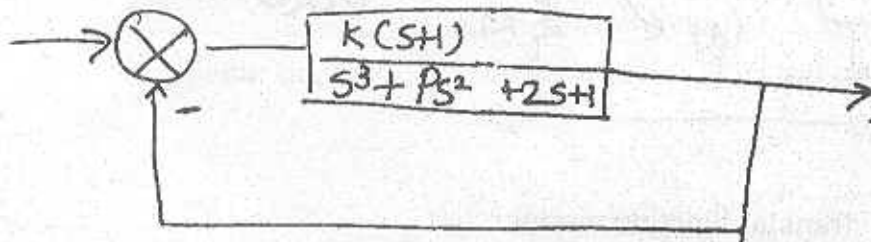 K(S+1)
S³+PS² +2S+1
-